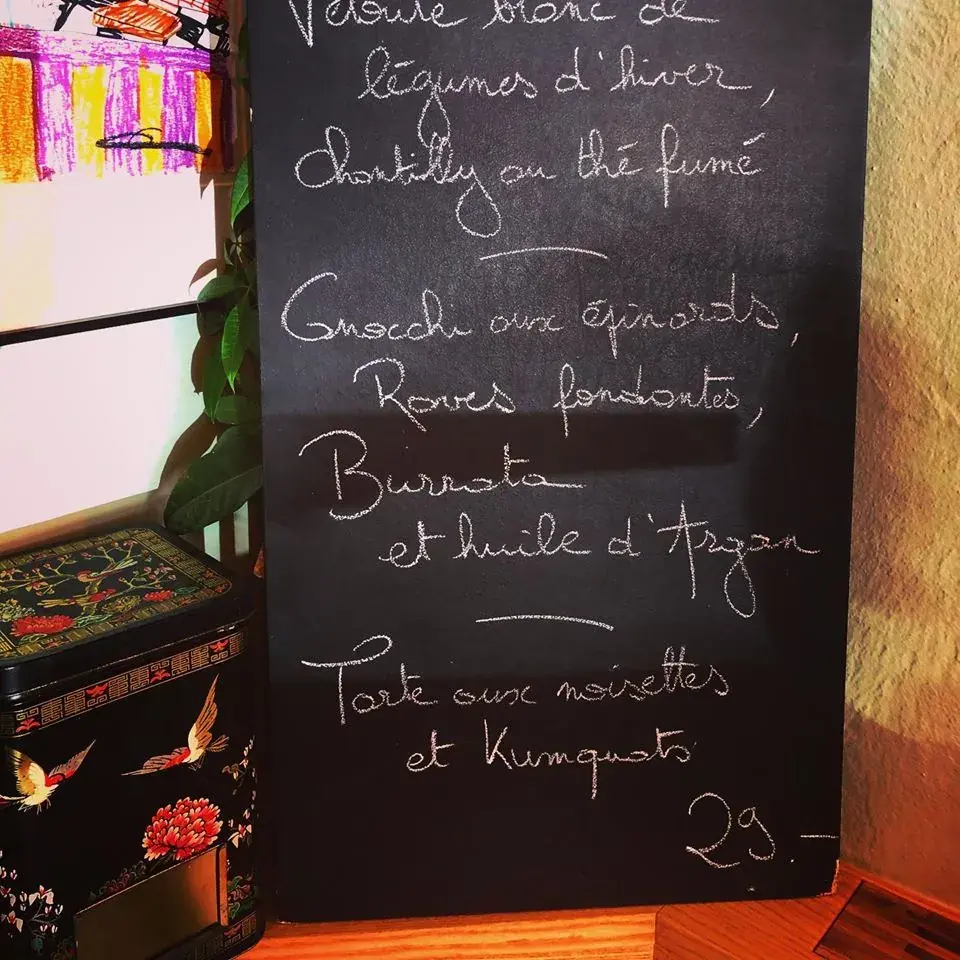 Velouté blanc de
légumes d'hiver,
Chantilly au thé fumé
Gnocchi aux épinards,
Raves fondantes,
Burrata
et huile d'Argan
Tarte aux noisettes
et Kumquats
29.–